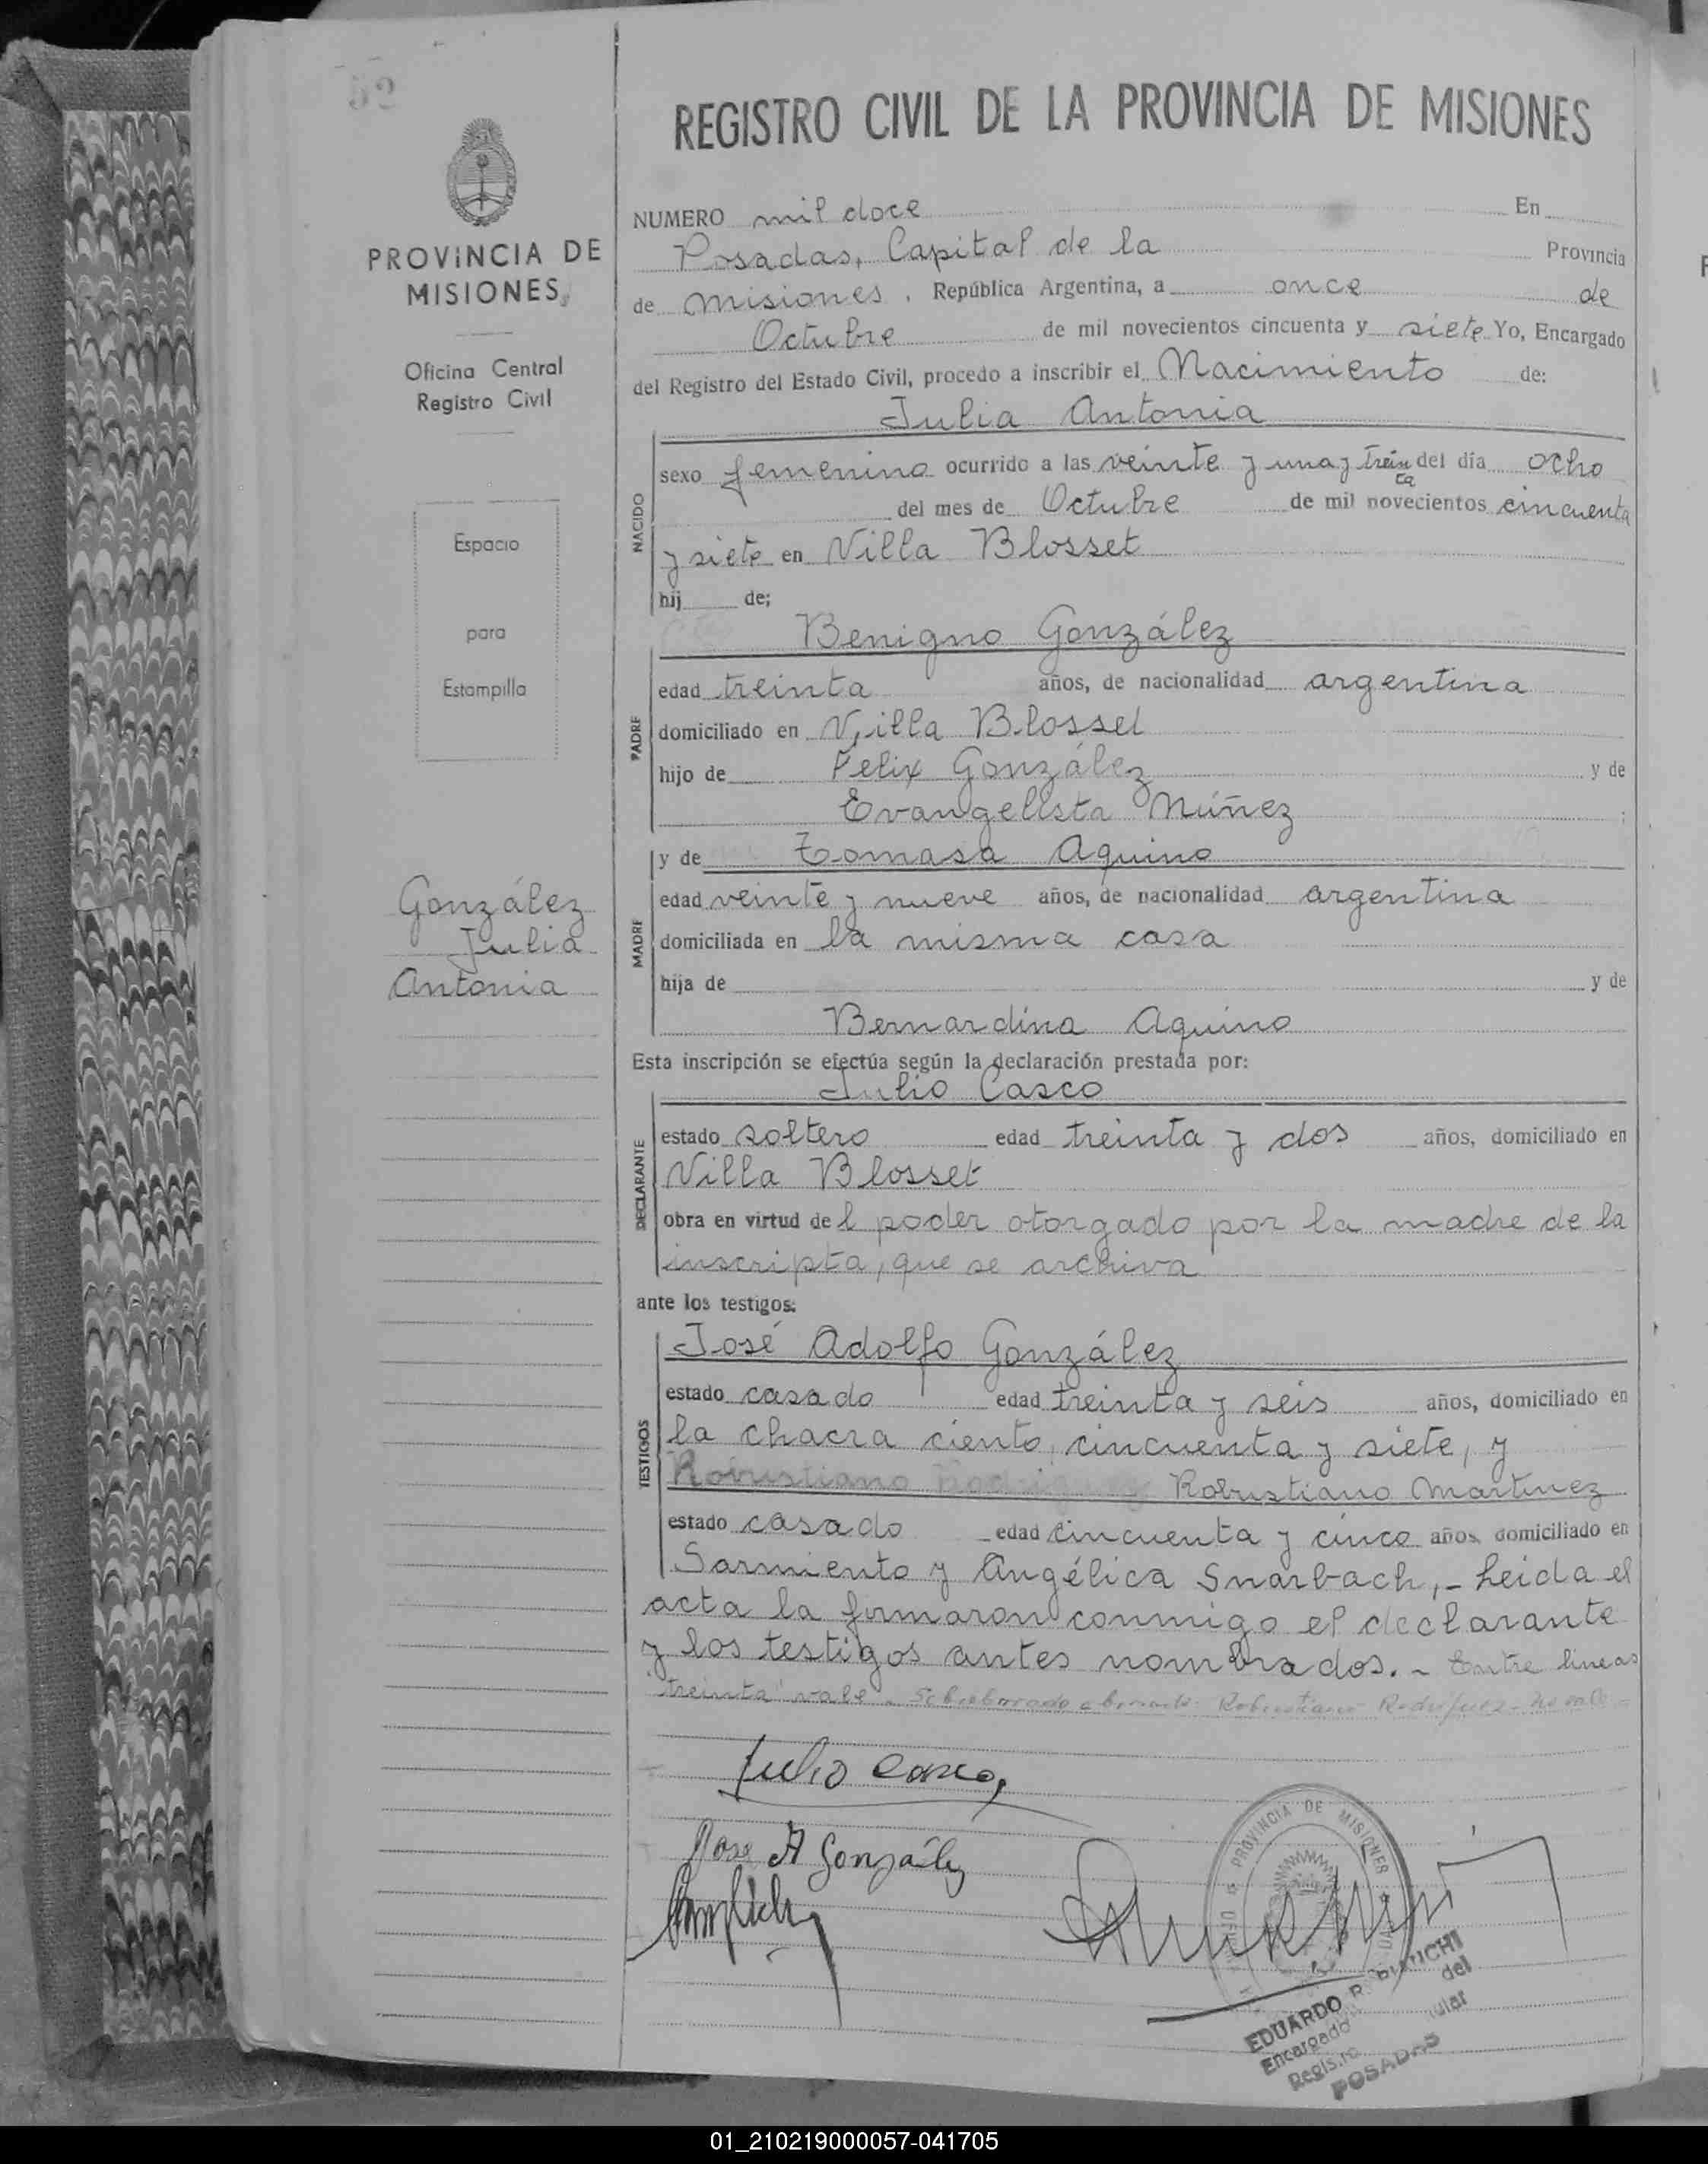 52
REGISTRO CIVIL DE LA PROVINCIA DE MISIONES
PROVINCIA DE
MISIONES
Oficina Central
Registro Civil
Espacio
para
Estampilla
González
Julia
Antonia
NUMERO mil doce En
Posadas, Capital de la Provincia
de Misiones, República Argentina, a once de
Octubre de mil novecientos cincuenta y siete Yo, Encargado
del Registro del Estado Civil, procedo a inscribir el Nacimiento de:
Julia Antonia
NACIDO
sexo femenino ocurrido a las veinte y una y trein del día ocho
ta
del mes de Octubre de mil novecientos cincuenta
y siete en Villa Blosset
hij de;
Benigno González
PADRE
edad treinta años, de nacionalidad argentina
domiciliado en Villa Blosset
hijo de Felix González y de
Evangelista Núñez ;
y de Tomasa Aquino
MADRE
edad veinte y nueve años, de nacionalidad argentina
domiciliada en la misma casa
hija de y de
Bernardina Aquino
Esta inscripción se efectúa según la declaración prestada por:
Julio Casco
DECLARANTE
estado soltero edad treinta y dos años, domiciliado en
Villa Blosset
obra en virtud del poder otorgado por la madre de la
inscripta, que se archiva
ante los testigos:
José Adolfo González
TESTIGOS
estado casado edad treinta y seis años, domiciliado en
la chacra ciento cincuenta y siete, y
Robustiano Rodriguez Robustiano Martinez
estado casado edad cincuenta y cinco años domiciliado en
Sarmiento y Angélica Snarbach,- Leida el
acta la firmaron conmigo el declarante
y los testigos antes nombrados.- Entre lineas
"treinta" vale - Robustiano Rodriguez - No vale -
Julio Casco,
Jose A González
PROVINCIA DE MISIONES
EDUARDO R. BIANCHI
Encargado del
POSADAS
01_210219000057-041705